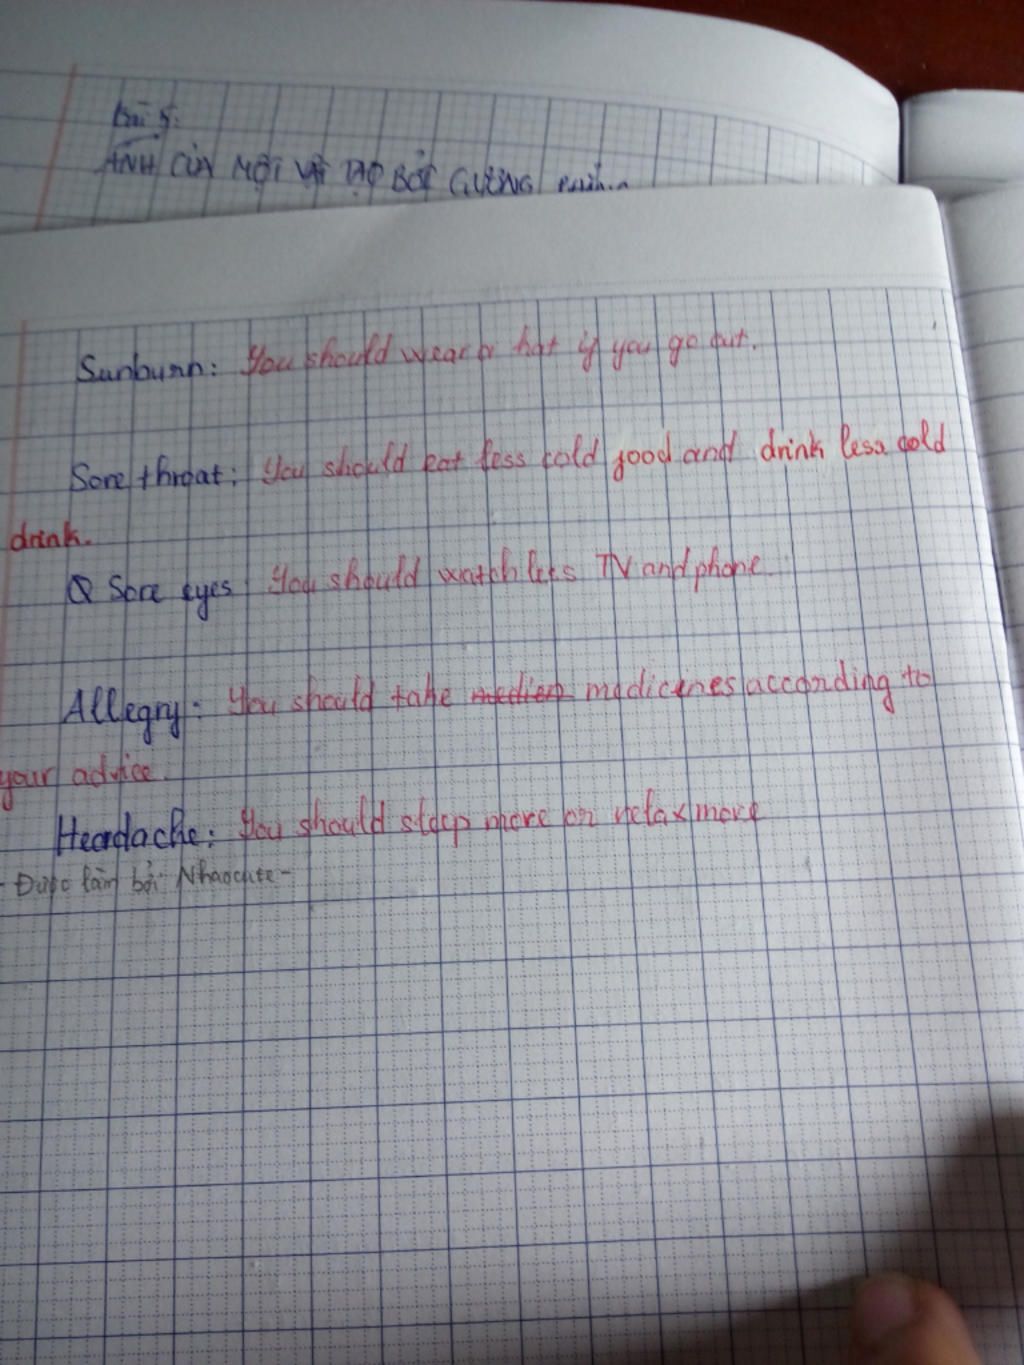 Bài 5:
ẢNH CỦA MỘT VẬT TẠO BỞI GƯƠNG
Sunburn: You should wear a hat if you go out.
Sore throat: You should eat less cold food and drink less cold
drink.
Sore eyes: You should watch less TV and phone
Allegry: You should take medicines according to
your advice.
Headache: You should sleep more or relax more
- Được làm bởi Nhaocute -